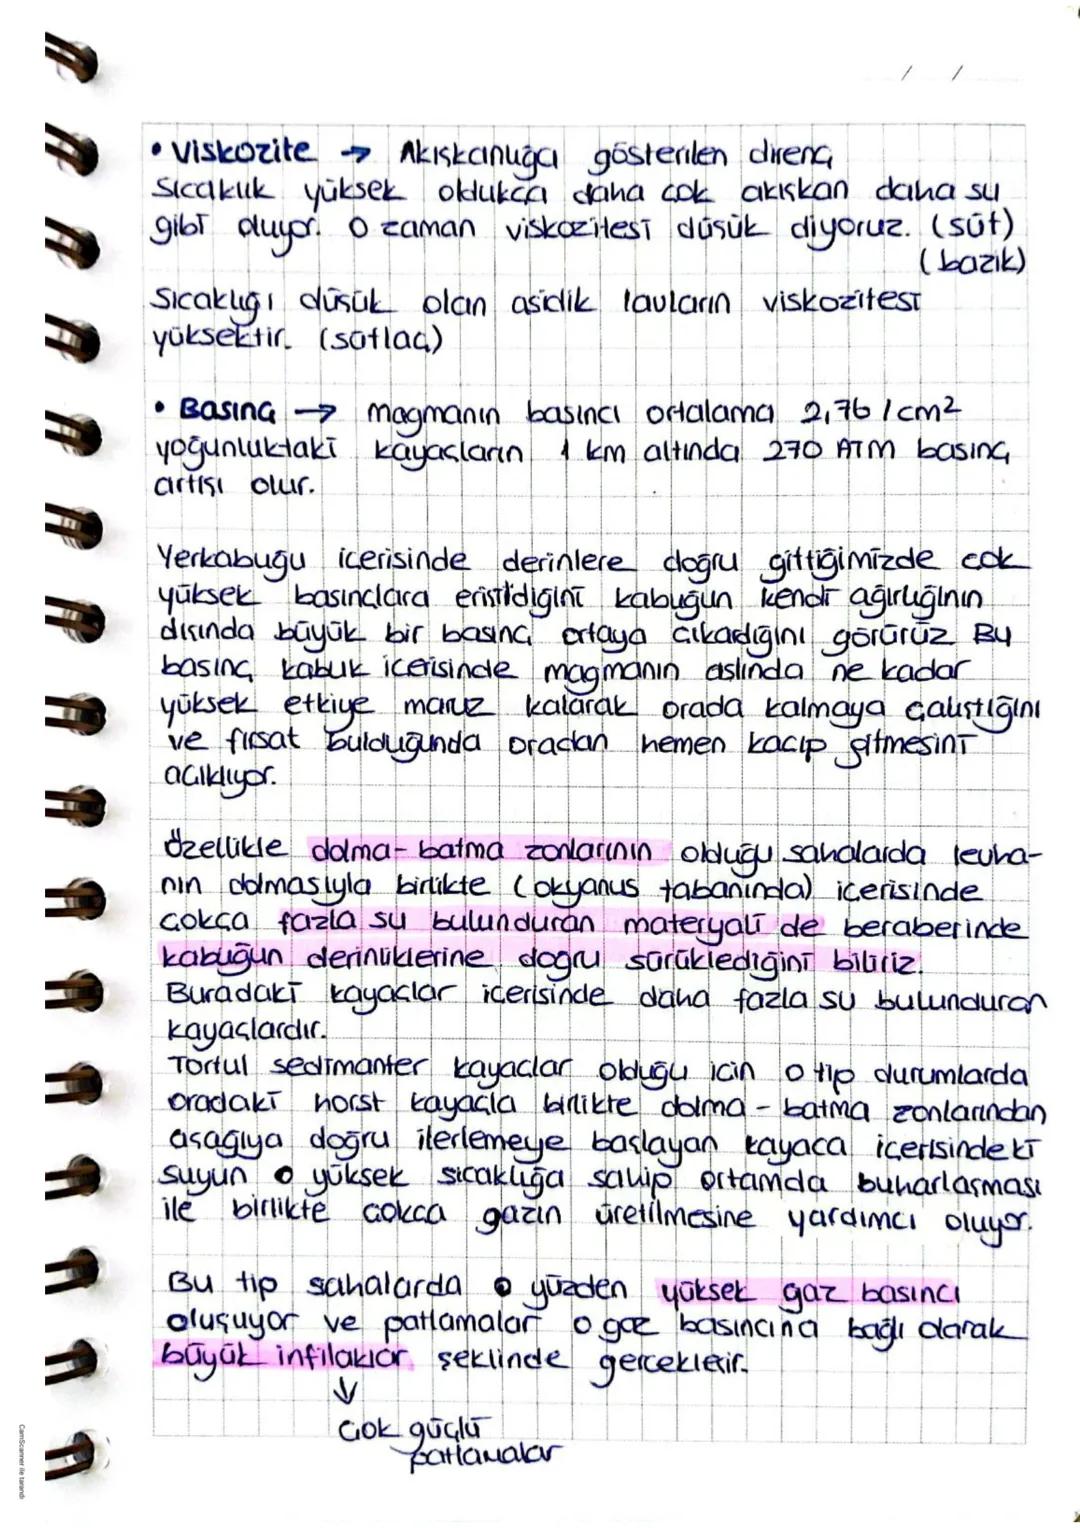 / /
• Viskozite → Akışkanlığa gösterilen direnç
Sıcaklık yüksek oldukça daha çok akışkan daha su
gibi oluyor. O zaman viskozitesi düşük diyoruz. (süt)
(bazik)
Sıcaklığı düşük olan asidik lavların viskozitesi
yüksektir. (sütlaç)
• Basınç → magmanın basıncı ortalama 2,76 / cm2
yoğunluktaki kayaçların 1 km altında 270 ATM basınç
artışı olur.
Yerkabuğu içerisinde derinlere doğru gittiğimizde çok
yüksek basınçlara erişildiğini kabuğun kendi ağırlığının
dışında büyük bir basınç ortaya çıkardığını görürüz Bu
basınç kabuk içerisinde magmanın aslında ne kadar
yüksek etkiye maruz kalarak orada kalmaya çalıştığını
ve fırsat bulduğunda oradan hemen kaçıp gitmesini
açıklıyor.
Özellikle dalma-batma zonlarının olduğu sahalarda levha-
nın dalmasıyla birlikte (okyanus tabanında) içerisinde
çokça fazla su bulunduran materyali de beraberinde
kabuğun derinliklerine doğru sürüklediğini biliriz.
Buradaki kayaçlar içerisinde daha fazla su bulunduran
kayaçlardır.
Tortul sedimanter kayaçlar olduğu için o tip durumlarda
oradaki horst kayaçla birlikte dalma-batma zonlarından
aşağıya doğru ilerlemeye başlayan kayaca içerisindeki
suyun o yüksek sıcaklığa sahip ortamda buharlaşması
ile birlikte çokca gazın üretilmesine yardımcı oluyor.
Bu tip sahalarda o yüzden yüksek gaz basıncı
oluşuyor ve patlamalar o gaz basıncına bağlı olarak
büyük infilaklar şeklinde gerçekleşir.
↓
Çok güçlü
patlamalar
CamScanner ile tarandı